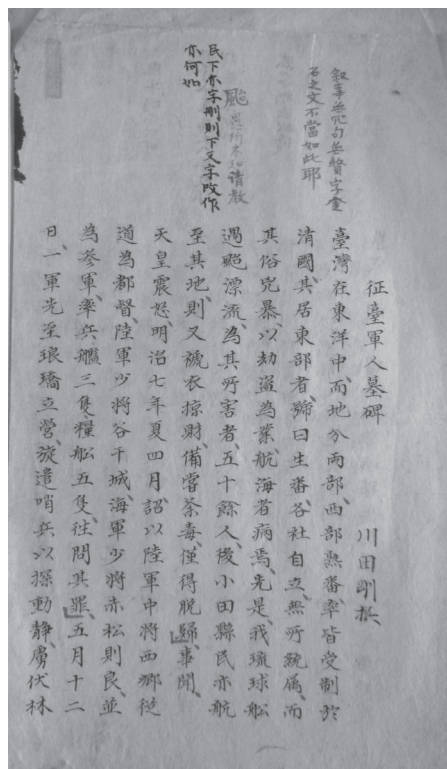 叙事無冗句無贅字金
石之文不當如此耶
颱
民下亦字刪則下又字改作
亦何如
征臺軍人墓碑
川田剛撰
臺灣在東洋中、而地分兩部、西部熟番率皆受制於
清國、其居東部者、號曰生番、各社自立、無所統属、而
其俗兇暴、以劫盜為業、航海者病焉、先是、我琉球船
遇颱漂流、為其所害者、五十餘人、後小田縣民亦航
至其地、則又褫衣掠財、備嘗荼毒、僅得脫歸、事聞、
天皇震怒、明治七年夏四月、詔以陸軍中將西鄉從
道為都督、陸軍少將谷干城、海軍少將赤松則良、並
為參軍、率兵艦三隻、糧船五隻、往問其罪、五月十二
日、一軍先至琅璚立營、旋遣哨兵、以探動靜、虜伏林